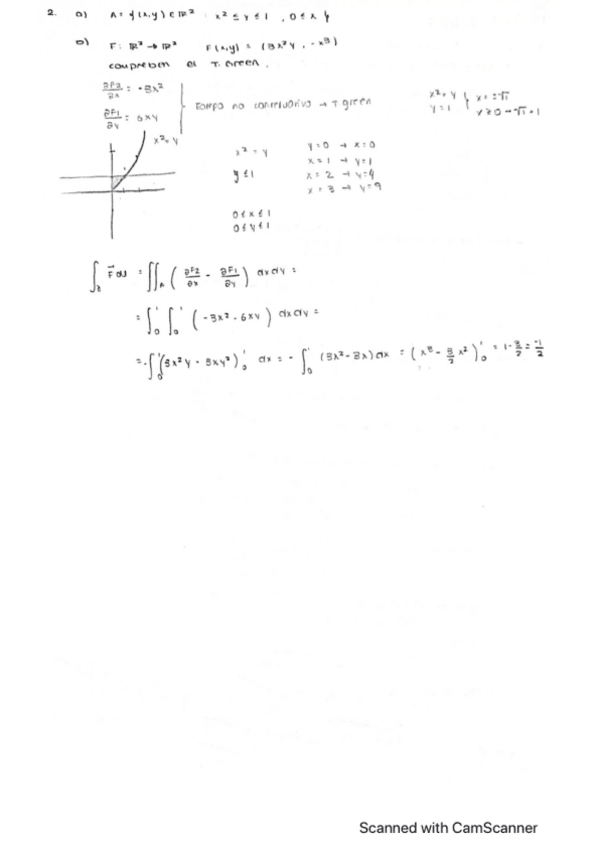 2. a) A = {(x,y) ∈ ℝ² x² ≤ y ≤ 1, 0 ≤ x}
b) F: ℝ² → ℝ² F(x,y) = (3x²y, -x³)
comprueben el T. Green.
∂F2/∂x = -3x²
∂F1/∂y = 6xy
campo no conservativo → T. green
x² = y
y = 1
x = ±√1
x ≥ 0 → √1 = 1
x² = y
x² = y
y ≤ 1
y = 0 → x = 0
x = 1 → y = 1
x = 2 → y = 4
x = 3 → y = 9
0 ≤ x ≤ 1
0 ≤ y ≤ 1
∫ F⃗ ds = ∬_A (∂F2/∂x - ∂F1/∂y) dx dy =
= ∫₀¹ ∫₀¹ (-3x² - 6xy) dx dy =
= -∫₀¹ (3x²y - 3xy²)₀¹ dx = -∫₀¹ (3x² - 3x) dx = (x³ - 3/2 x²)₀¹ = 1 - 3/2 = -1/2
Scanned with CamScanner